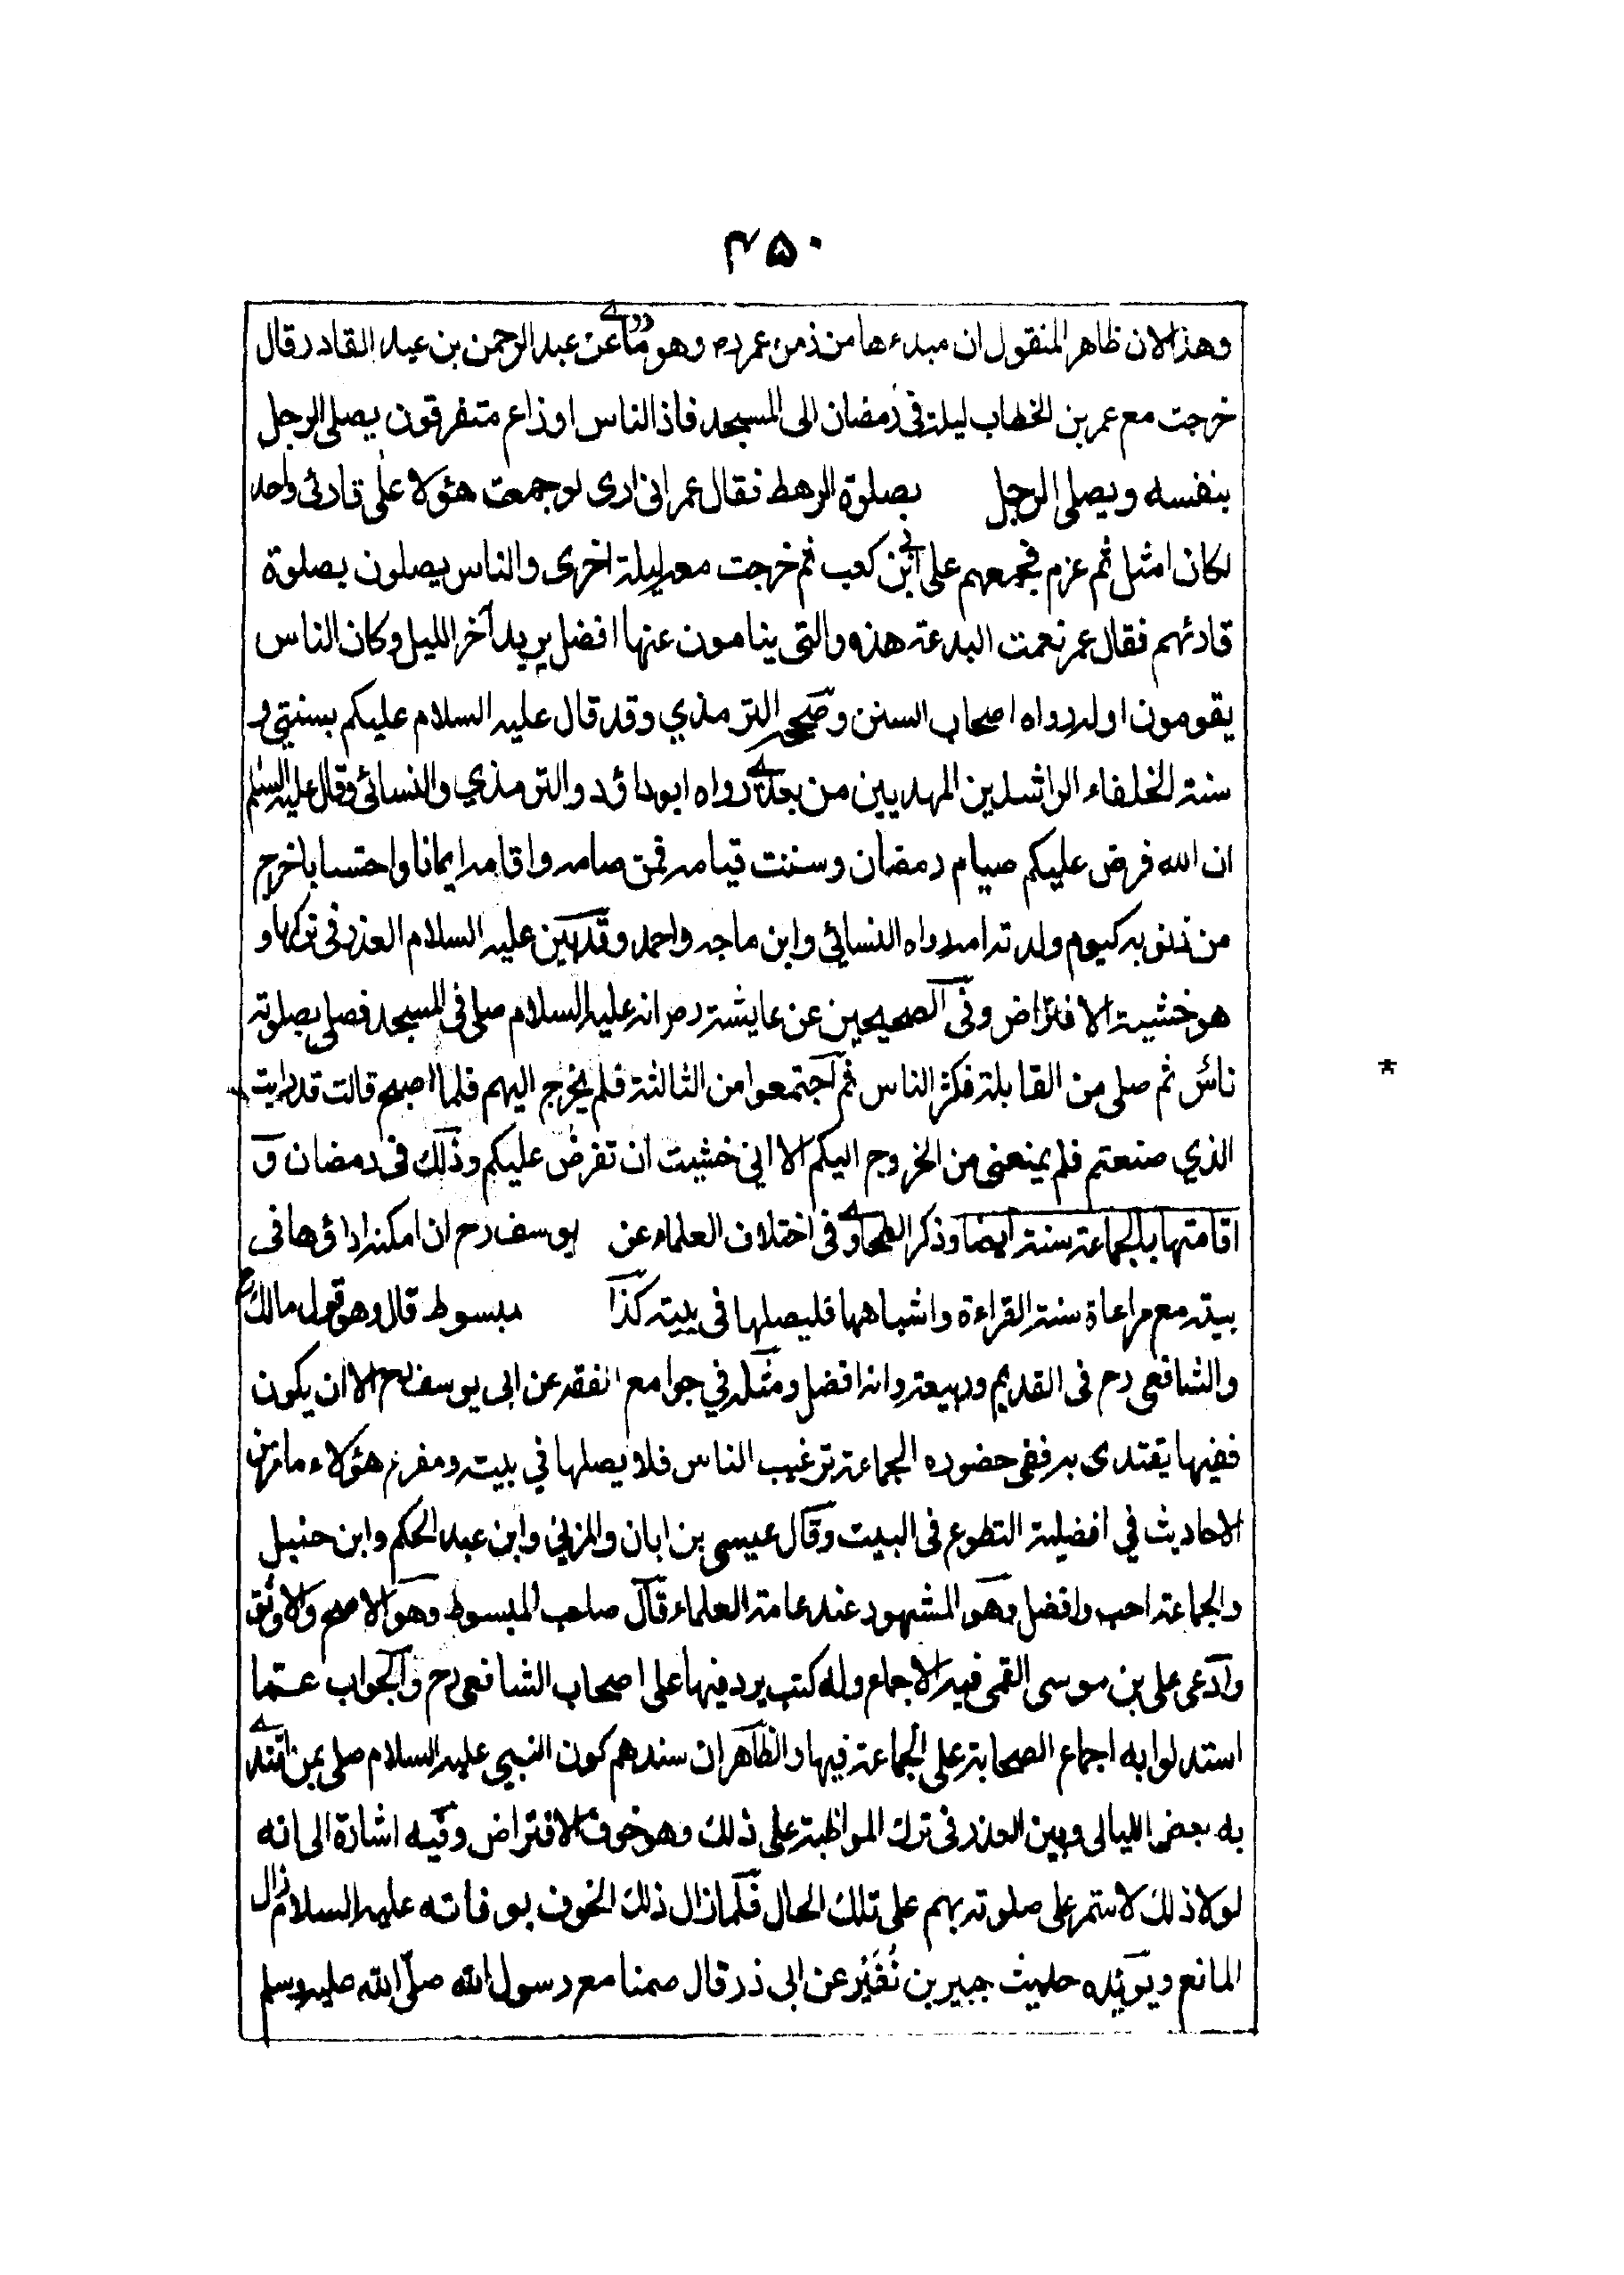 ۴۵۰
وهذا لان ظاهر المنقول ان مبدءها من زمن عمر رض وهو ما روى عن عبد الرحمن بن عبد القادر قال
خرجت مع عمر بن الخطاب ليلة فى رمضان الى المسجد فاذا الناس اوزاع متفرقون يصلى الرجل
بنفسه ويصلى الرجل بصلوة الرهط فقال عمر انى ارى لو جمعت هؤلا على قارئ واحد
لكان امثل ثم عزم فجمعهم على ابى بن كعب ثم خرجت معه ليلة اخرى والناس يصلون بصلوة
قارئهم فقال عمر نعمت البدعة هذه والتى ينامون عنها افضل يريد آخر الليل وكان الناس
يقومون اوله رواه اصحاب السنن وصححه الترمذي وقد قال عليه السلام عليكم بسنتي و
سنة الخلفاء الراشدين المهديين من بعدى رواه ابو داؤد والترمذي والنسائى وقال عليه السلم
ان الله فرض عليكم صيام رمضان وسننت قيامه فمن صامه واقامه ايمانا واحتسابا خرج
من ذنوبه كيوم ولدته امه رواه النسائي وابن ماجه واحمد وقد بين عليه السلام العذر فى تركها و
هو خشية الافتراض وفى الصحيحين عن عايشة رض انه عليه السلام صلى فى المسجد فصلى بصلوته
ناس ثم صلى من القابلة فكثر الناس ثم اجتمعوا من الثالثة فلم يخرج اليهم فلما اصبح قالت قد رايت
الذي صنعتم فلم يمنعنى من الخروج اليكم الا انى خشيت ان تفرض عليكم وذلك فى رمضان و
اقامتها بالجماعة سنة ايضا وذكر الطحاوى فى اختلاف العلماء عن يوسف رح ان امكنه اداؤها فى
بيته مع مراعاة سنة القراءة واشباهها فليصلها فى بيته كذا مبسوط قال وهو قول مالك رح
والشافعى رح فى القديم وربيعة وانه افضل ومثله في جوامع الفقه عن ابى يوسف رح الا ان يكون
فقيها يقتدى به ففى حضوره الجماعة ترغيب الناس فلا يصلها في بيته ومفزع هؤلاء
الاحاديث في افضلية التطوع فى البيت وقال عيسى بن ابان والمزني وابن عبد الحكم وابن حنبل
والجماعة احب وافضل وهو المشهور عند عامة العلماء قال صاحب المبسوط وهو الاصح والاوثق
وادعى على بن موسى القمى فيه الاجماع وله كتب يرد فيها على اصحاب الشافعى رح والجواب عما
استدلوا به اجماع الصحابة على الجماعة فيها والظاهر ان سندهم كون النبي عليه السلام صلى بمن اقتدى
به بعض الليالى وبين العذر فى ترك المواظبة على ذلك وهو خوف الافتراض وفيه اشارة الى انه
لولا ذلك لاستمر على صلوته بهم على تلك الحال فلما زال ذلك الخوف بوفاته عليه السلام زال
المانع ويؤيده حديث جبير بن نُفَيْر عن ابى ذر قال صمنا مع رسول الله صلّى الله عليه وسلم
*